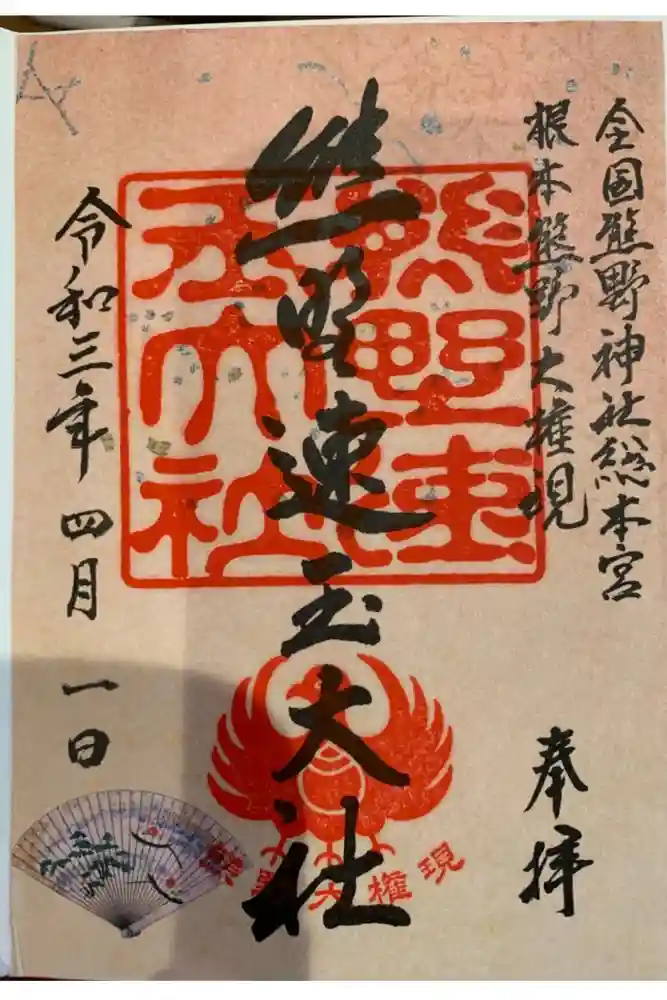 全国熊野神社総本宮
根本熊野大権現
奉拝
熊野速玉大社
熊野速玉大社
熊野大権現
令和三年四月一日